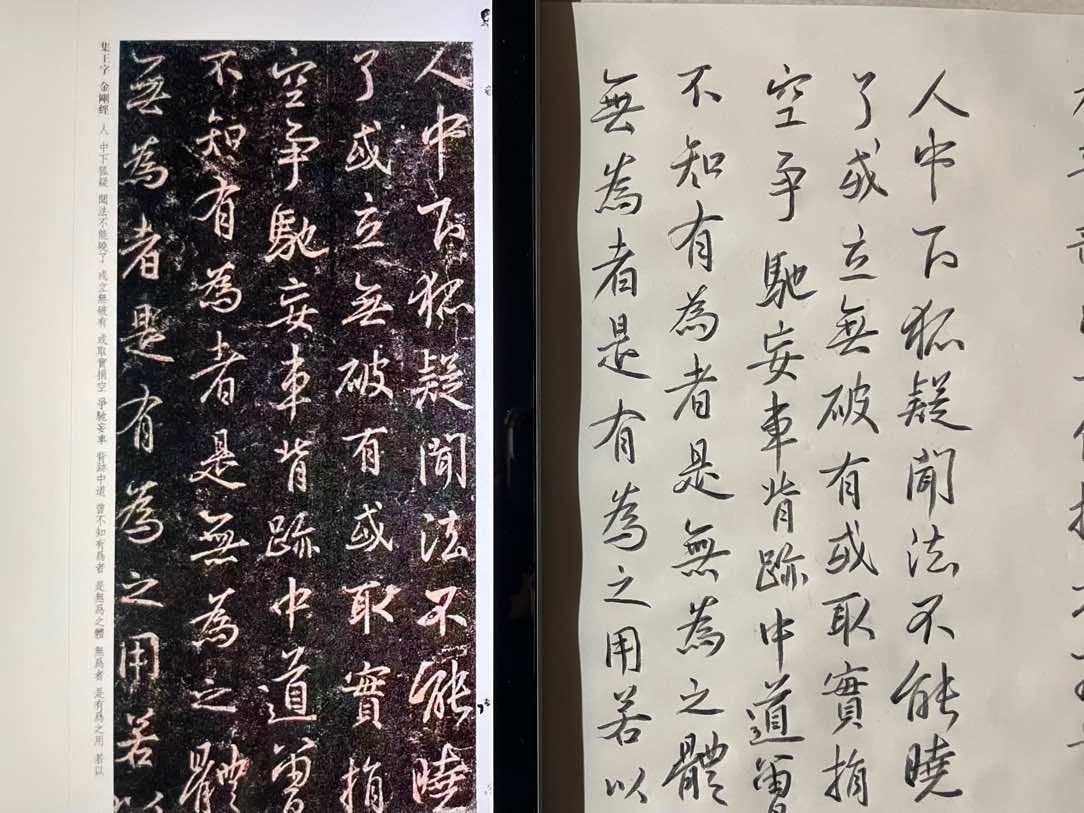 人中下狐疑聞法不能曉
了或立無破有或取實捐
空争馳妄車背跡中道曾
不知有為者是無為之體
無為者是有為之用若以
集王字 金剛經 人 中下狐疑 聞法不能曉了 或立無破有 或取實捐空 爭馳妄車 背跡中道 曾不知有爲者 是無爲之體 無爲者 是有爲之用 若以
人中下狐疑聞法不能曉
了或立無破有或取實捐
空争馳妄車背跡中道曾
不知有為者是無為之體
無為者是有為之用若以